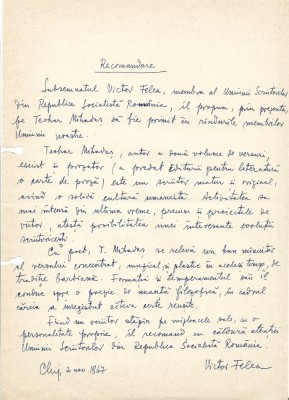 Recomandare
Subsemnatul Victor Felea, membru al Uniunii Scriitorilor
din Republica Socialistă România, îl propun, prin prezenta,
pe Teohar Mihadaș să fie primit în rîndurile membrilor
Uniunii noastre.
Teohar Mihadaș, autor a două volume de versuri,
eseist și prozator (a predat Editurii pentru literatură
o carte de proză) este un scriitor matur și original,
avînd o solidă cultură umanistă. Activitatea sa
mai intensă din ultima vreme, precum și proiectele de
viitor, atestă posibilitatea unei interesante evoluții
scriitoricești.
Ca poet, T. Mihadaș se relevă un bun mînuitor
al versului concentrat, muzical și plastic în același timp, de
tradiție barbiană. Formația și temperamentul său îl
conduc spre o poezie de nuanță filozofică, în cadrul
căreia a înregistrat cîteva certe reușite.
Fiind un scriitor stăpîn pe mijloacele sale, cu o
personalitate proprie, îl recomand cu căldură atenției
Uniunii Scriitorilor din Republica Socialistă România.
Cluj, 2 nov. 1967
Victor Felea